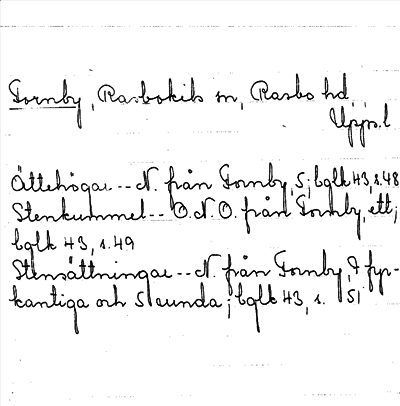 Fornby, Rasbokils sn, Rasbo hd,
Upps.l
Ättehögar -- N. från Fornby, 5; bglk 43, s.48
Stenkummel -- O.N.O. från Fornby, ett;
bglk 43, s.49
Stensättningar -- N. från Fornby, fyr-
kantiga och 5 runda; bglk 43, s. 51